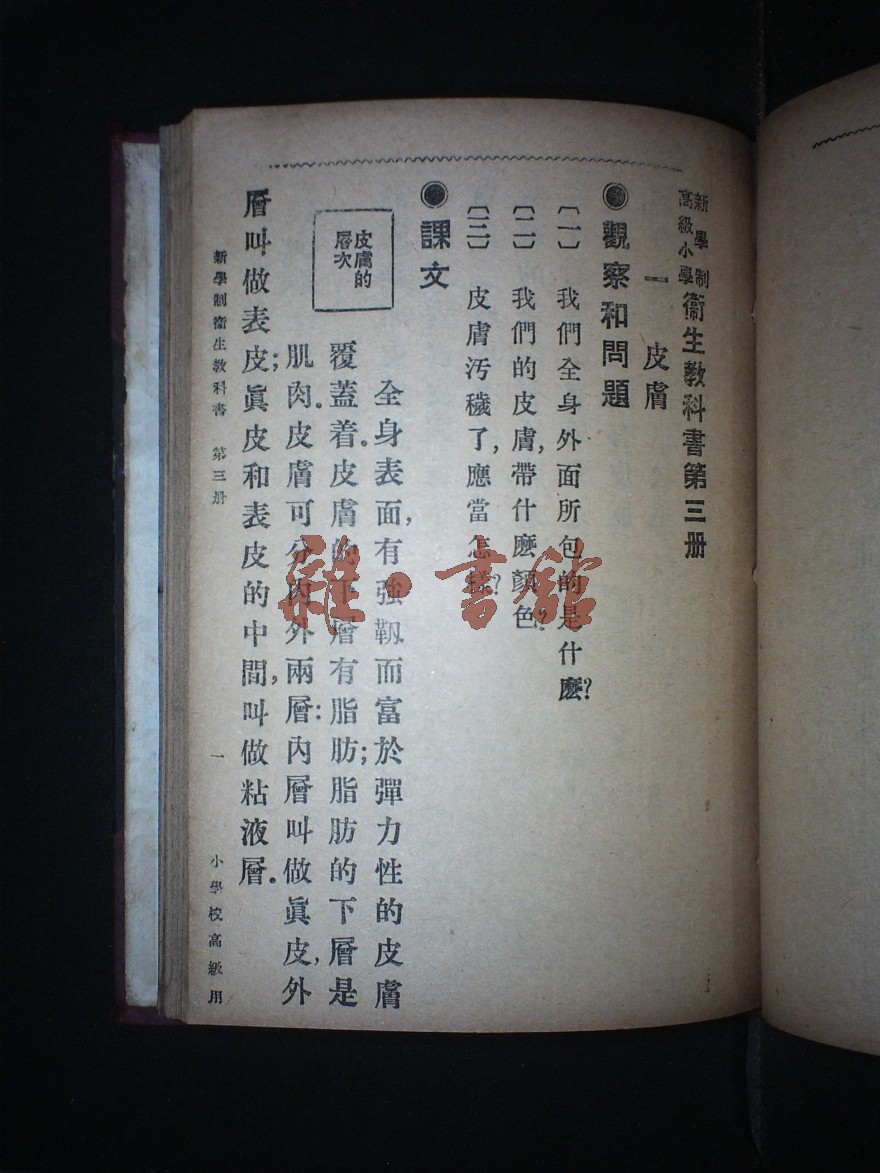 新學制
高級小學
衞生教科書第三册
一 皮膚
觀察和問題
〔一〕 我們全身外面所包的是什麽?
〔二〕 我們的皮膚,帶什麽顏色?
〔三〕 皮膚汚穢了,應當怎樣?
課文
皮膚的
層次
全身表面,有強韌而富於彈力性的皮膚
覆蓋着.皮膚的下層有脂肪;脂肪的下層是
肌肉.皮膚可分內外兩層:內層叫做眞皮,外
層叫做表皮;眞皮和表皮的中間,叫做粘液層.
新學制衞生教科書 第三册 一 小學校高級用
雜·書館